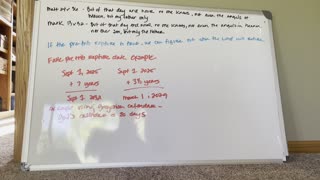 Matt 24:36 - But of that day and hour no one knows, not even the angels of
heaven, but my father only
Mark 13:32 - But of that day and hour no one knows, not even the angels in heaven,
nor the Son, but only the Father
If the pre-trib rapture is true, we can figure out when the Lord will return.
Fake pre-trib rapture date. Example.
Sept 1, 2025 Sept 1, 2025
+ 7 years + 3½ years
Sept 1, 2032 March 1, 2029
calendar -
God's calendar is 30 days